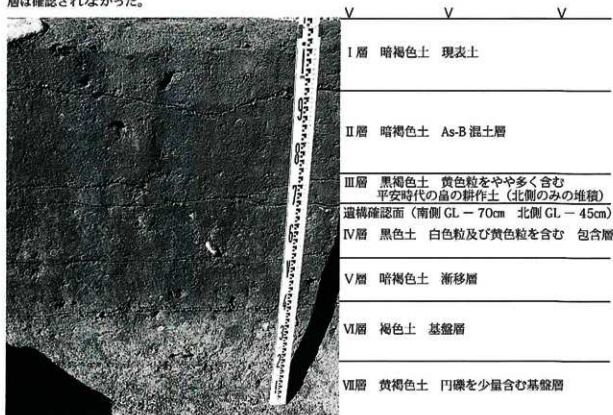 層は確認されなかった。
Ⅰ層 暗褐色土 現表土
Ⅱ層 暗褐色土 As-B 混土層
Ⅲ層 黒褐色土 黄色粒をやや多く含む
平安時代の畠の耕作土（北側のみの堆積）
遺構確認面（南側 GL − 70㎝ 北側 GL − 45㎝）
Ⅳ層 黒色土 白色粒及び黄色粒を含む 包含層
Ⅴ層 暗褐色土 漸移層
Ⅵ層 褐色土 基盤層
Ⅶ層 黄褐色土 円礫を少量含む基盤層